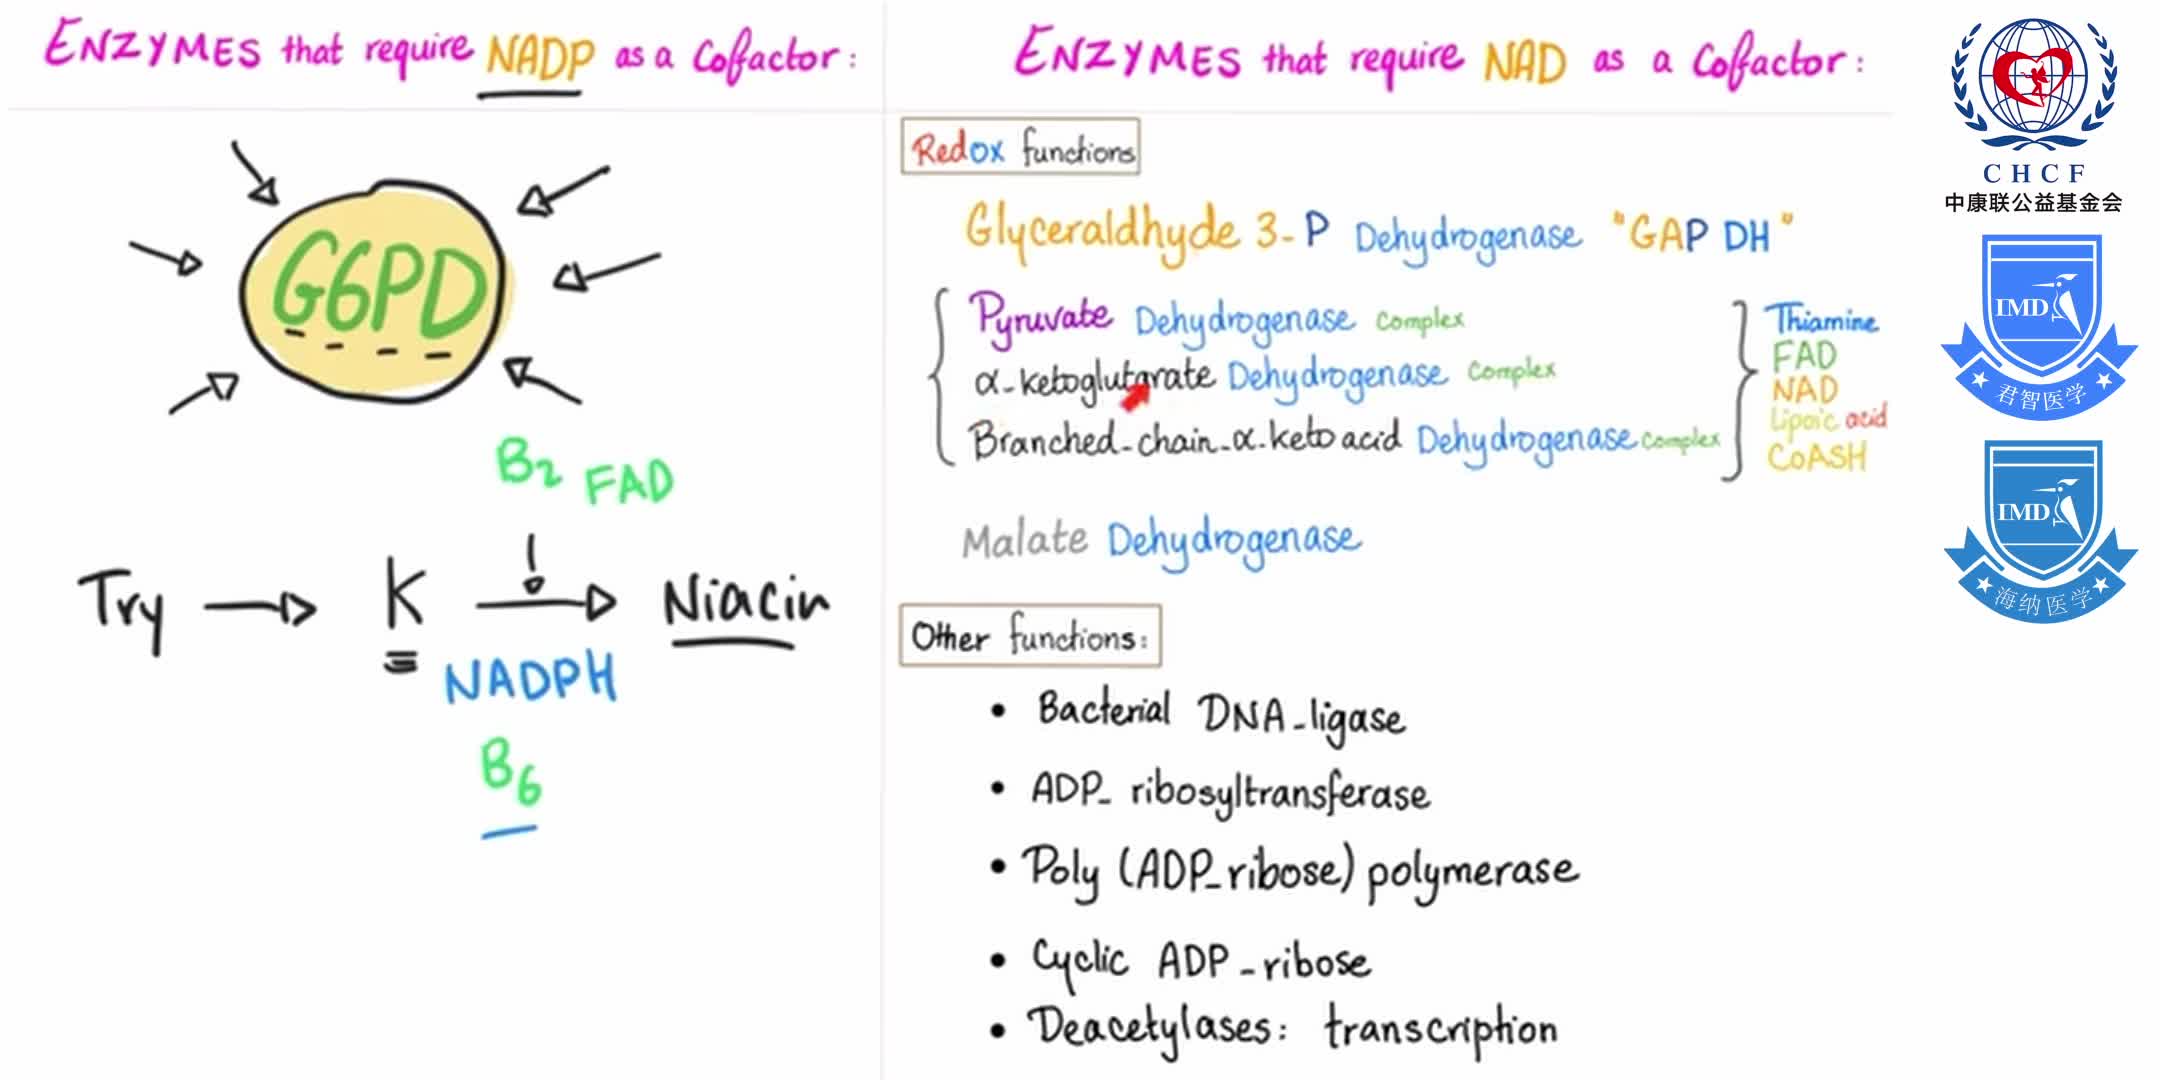 ENZYMES that require NADP as a Cofactor:
G6PD
B2 FAD
Try → K → Niacin
NADPH
B6
ENZYMES that require NAD as a Cofactor:
Redox functions
Glyceraldhyde 3-P Dehydrogenase "GAP DH"
Pyruvate Dehydrogenase Complex
α-ketoglutarate Dehydrogenase Complex
Branched-chain-α-keto acid Dehydrogenase Complex
Thiamine
FAD
NAD
Lipoic acid
CoASH
Malate Dehydrogenase
Other functions:
• Bacterial DNA-ligase
• ADP-ribosyltransferase
• Poly (ADP-ribose) polymerase
• Cyclic ADP-ribose
• Deacetylases: transcription
CHCF
中康联公益基金会
IMD
君智医学
IMD
海纳医学